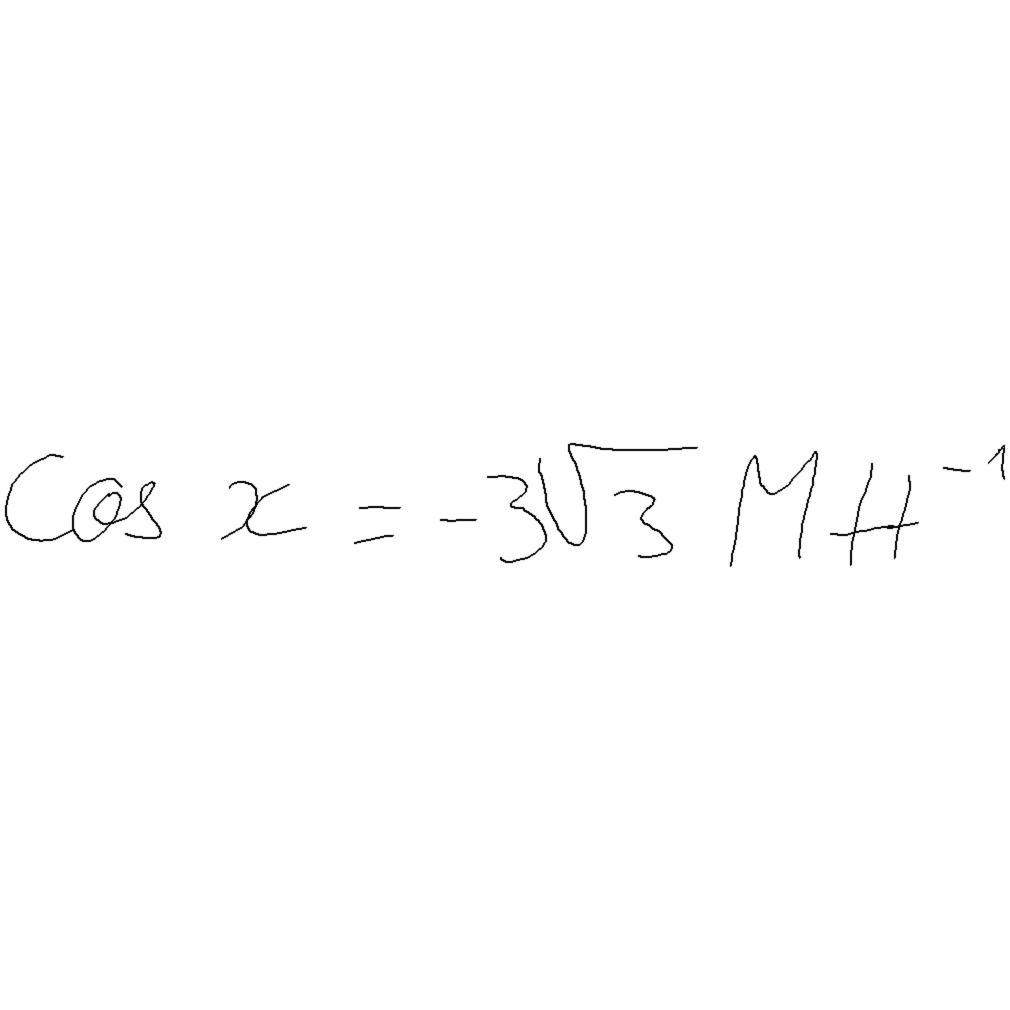 Cos x = -3√3 MH⁻¹